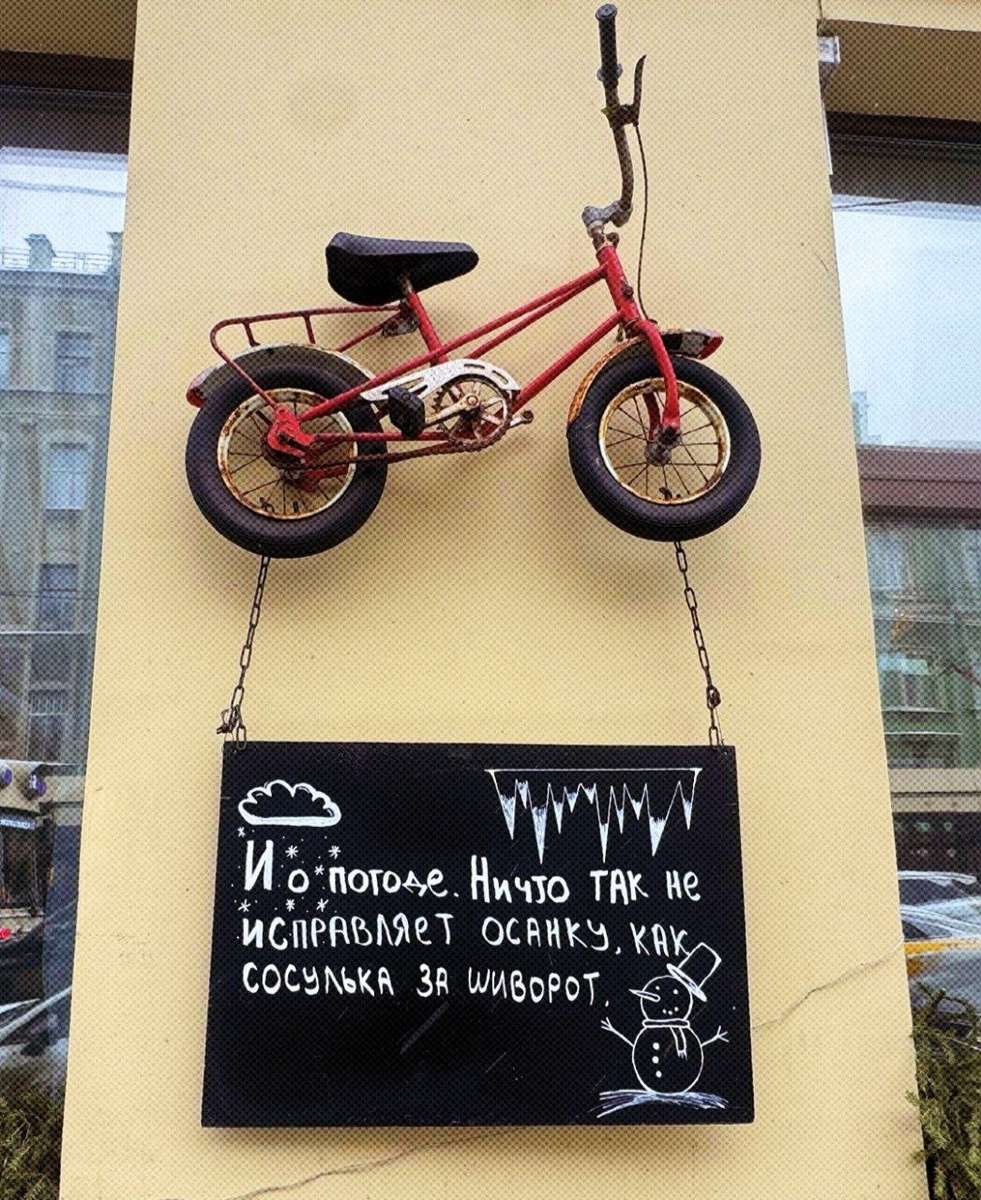 И о погоде. Ничто так не
исправляет осанку, как
сосулька за шиворот.